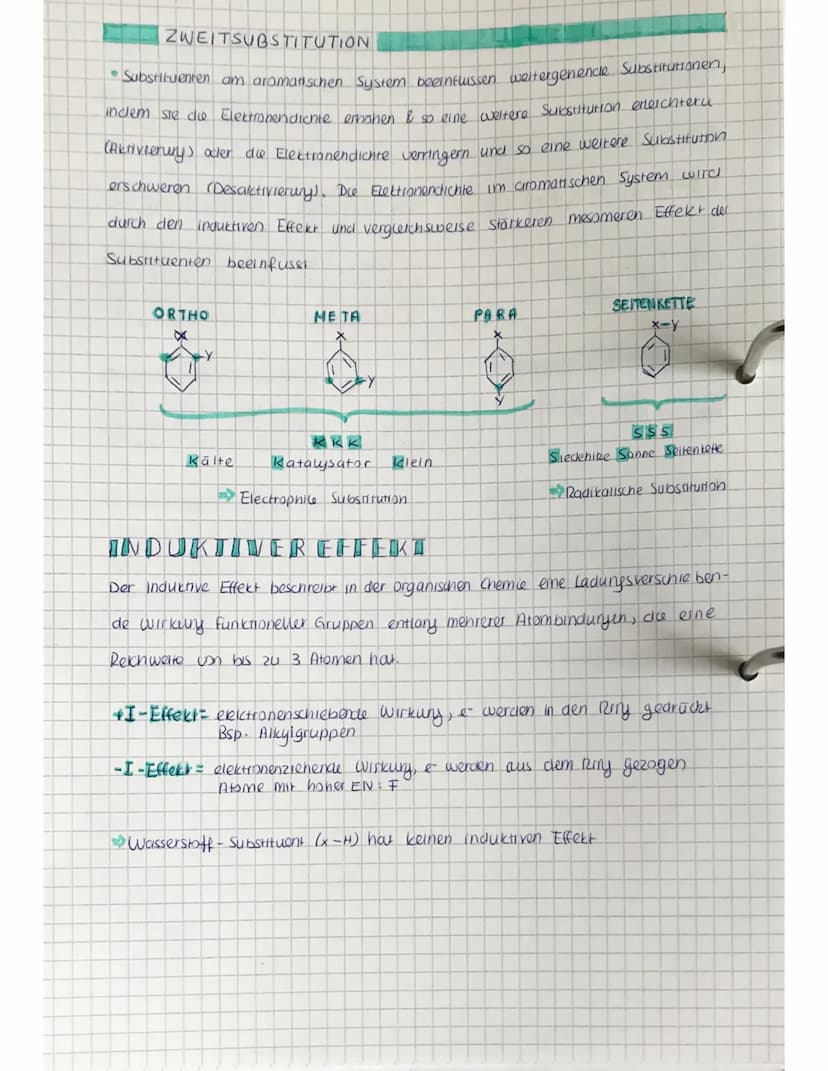 ZWEITSUBSTITUTION
• Substituenten am aromatischen System beeinflussen weitergehende Substitutionen,
indem sie die Elektronendichte erhöhen & so eine weitere Substitution erleichtern
(Aktivierung) oder die Elektronendichte verringern und so eine weitere Substitution
erschweren (Desaktivierung). Die Elektronendichte im aromatischen System wird
durch den induktiven Effekt und vergleichsweise stärkeren mesomeren Effekt der
Substituenten beeinfusst
ORTHO META PARA SEITENKETTE
X X X X-Y
Y Y Y
KKK SSS
Kälte Katalysator Klein Siedehitze Sonne Seitenkette
⇒ Electrophile Substitution ⇒ Radikalische Substitution
INDUKTIVER EFFEKT
Der Induktive Effekt beschreibt in der organischen Chemie eine Ladungsverschieben-
de Wirkung funktioneller Gruppen entlang mehrerer Atombindungen, die eine
Reichweite von bis zu 3 Atomen hat.
+I-Effekt = elektronenschiebende Wirkung, e⁻ werden in den Ring gedrückt
Bsp. Alkylgruppen
-I-Effekt = elektronenziehende Wirkung, e⁻ werden aus dem Ring gezogen
Atome mit hoher EN: F
⇒ Wasserstoff-Substituent (X-H) hat keinen induktiven Effekt